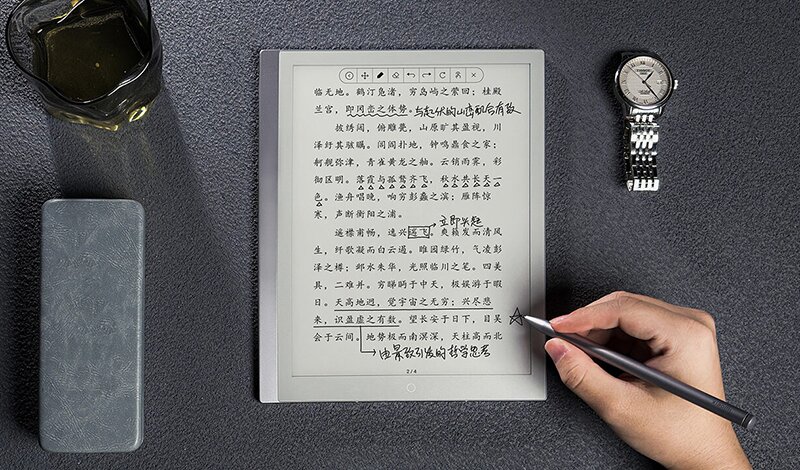 临无地。鹤汀凫渚，穷岛屿之萦回；桂殿
兰宫，即冈峦之体势。与起伏的山峦配合有致
披绣闼，俯雕甍，山原旷其盈视，川
泽纡其骇瞩。闾阎扑地，钟鸣鼎食之家；
舸舰弥津，青雀黄龙之轴。云销雨霁，彩
彻区明。落霞与孤鹜齐飞，秋水共长天一
色。渔舟唱晚，响穷彭蠡之滨；雁阵惊
寒，声断衡阳之浦。
立即兴起
遥襟甫畅，逸兴遄飞。爽籁发而清风
生，纤歌凝而白云遏。睢园绿竹，气凌彭
泽之樽；邺水朱华，光照临川之笔。四美
具，二难并。穷睇眄于中天，极娱游于暇
日。天高地迥，觉宇宙之无穷；兴尽悲
来，识盈虚之有数。望长安于日下，目吴
会于云间。地势极而南溟深，天柱高而北
由景致引发的哲学思考
2/4